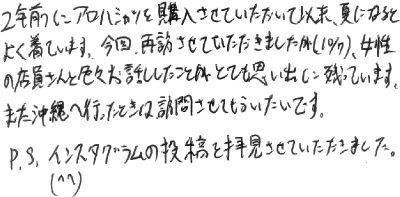 2年前にアロハシャツを購入させていただいて以来、夏になると
よく着ています。今回、再訪させていただきましたが(10/7)、女性
の店員さんと色々お話ししたことがとても思い出に残っています。
また沖縄へ行ったときは訪問させてもらいたいです。
P.S. インスタグラムの投稿を拝見させていただきました。
(^^)